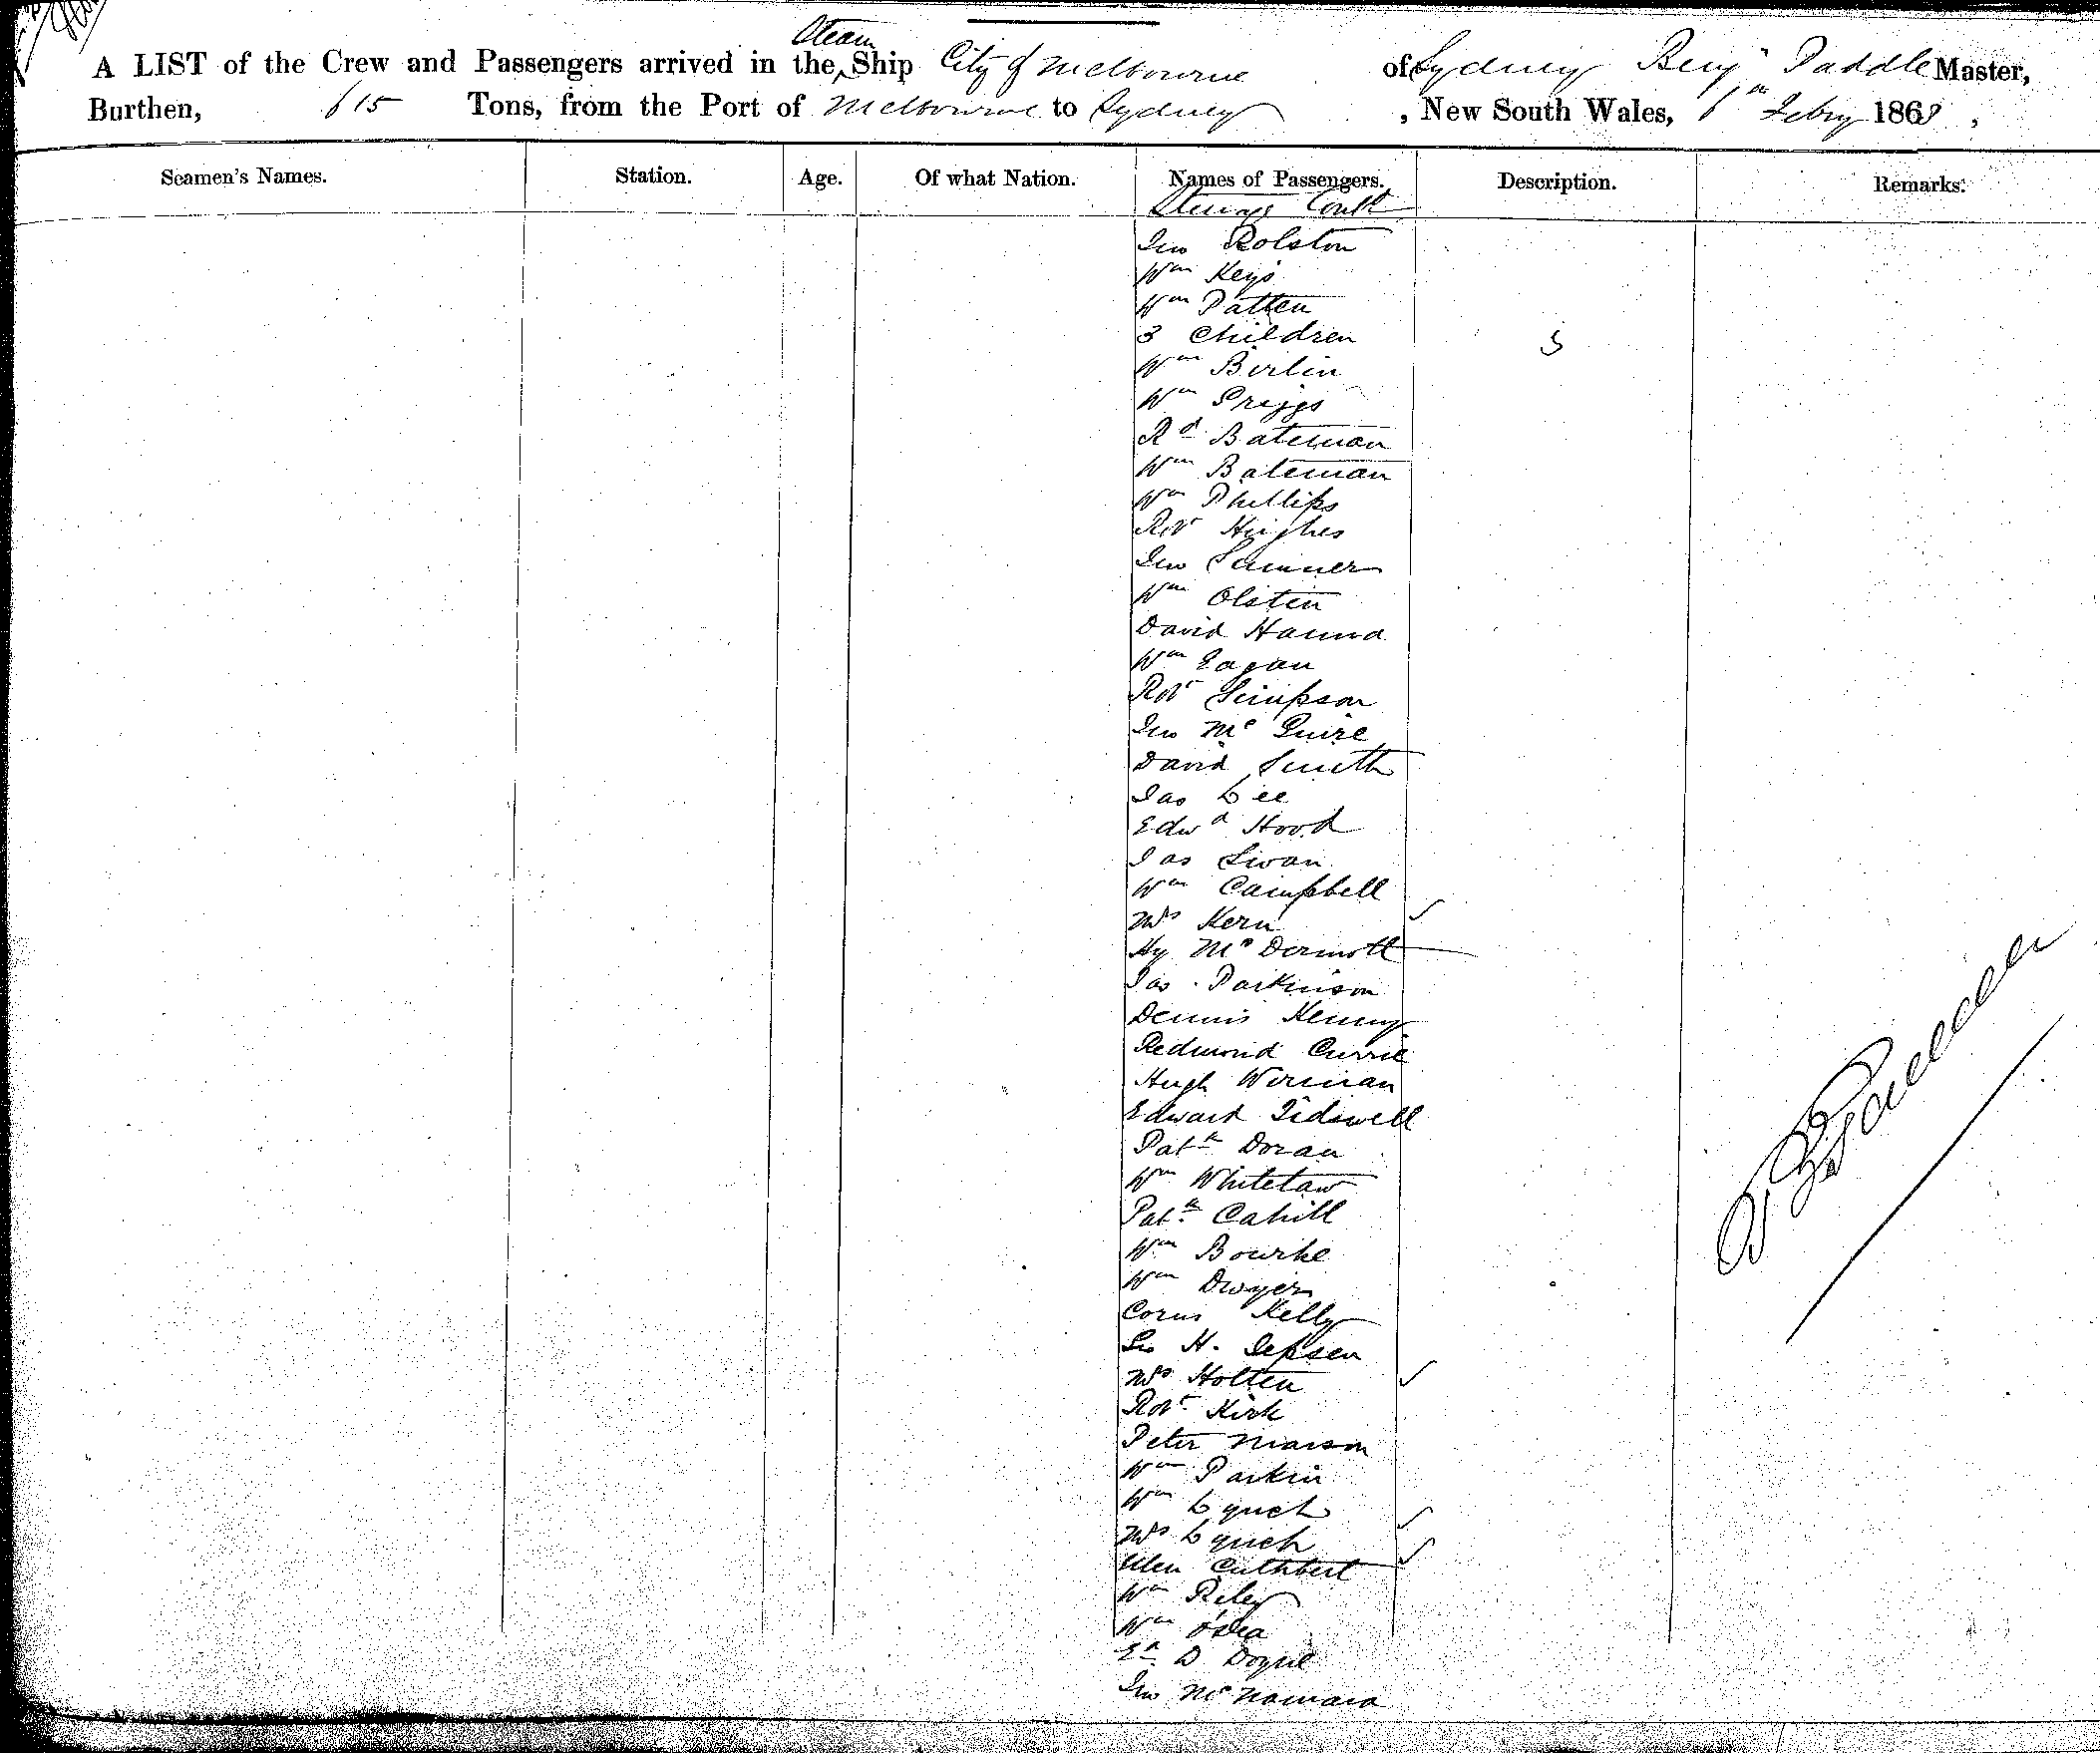 A LIST of the Crew and Passengers arrived in the Steam Ship City of Melbourne of Sydney Benj Paddle Master,
Burthen, 615 Tons, from the Port of Melbourne to Sydney, New South Wales, Febry 1868,
Seamen's Names. Station. Age. Of what Nation. Names of Passengers. Description. Remarks.
Steerage Contd
Jno Rolston
Wm Keys
Wm Patten
3 Children 3
Wm Birlin
Wm Priggs
Rd Bateman
Wm Bateman
Wm Phillips
Robt Hughes
Jno Sumner
Wm Olsten
David Hanna
Wm Eagan
Robt Simpson
Jno Mc Guire
David Smith
Jas Lee
Edwd Hood
Jas Swan
Wm Campbell
Mrs Kern
Hy Mc Dermott
Jas Parkinson
Dennis Kenny
Redmond Currie
Hugh Worman
Edward Tidswell
Patk Doran
Wm Whitelaw
Patk Cahill
Wm Bourke
Wm Dwyer
Corns Kelly
Geo H. Jepsen
Mrs Holten
Robt Kirk
Peter Marson
Wm Parkin
Wm Lynch
Mrs Lynch
Ellen Cuthbert
Wm Riley
Wm O'Dea
Ed D Doyle
Jno McNamara